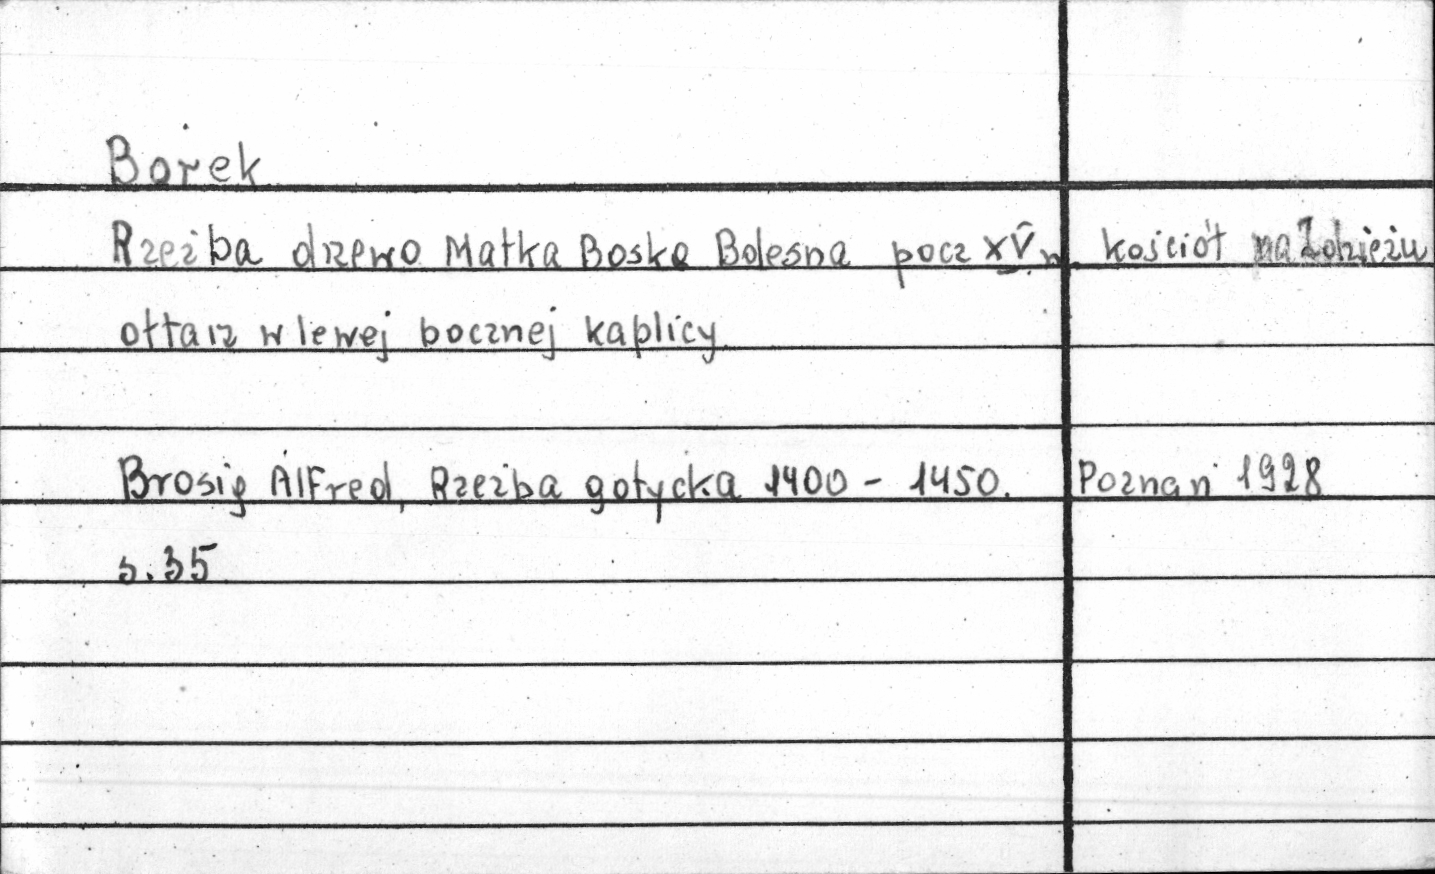 Borek
Rzeźba drzewo Matka Boska Bolesna pocz XV w. kościół na Zdzieżu
ołtarz w lewej bocznej kaplicy
Brosig Alfred, Rzeźba gotycka 1400 - 1450. Poznań 1928
s. 35